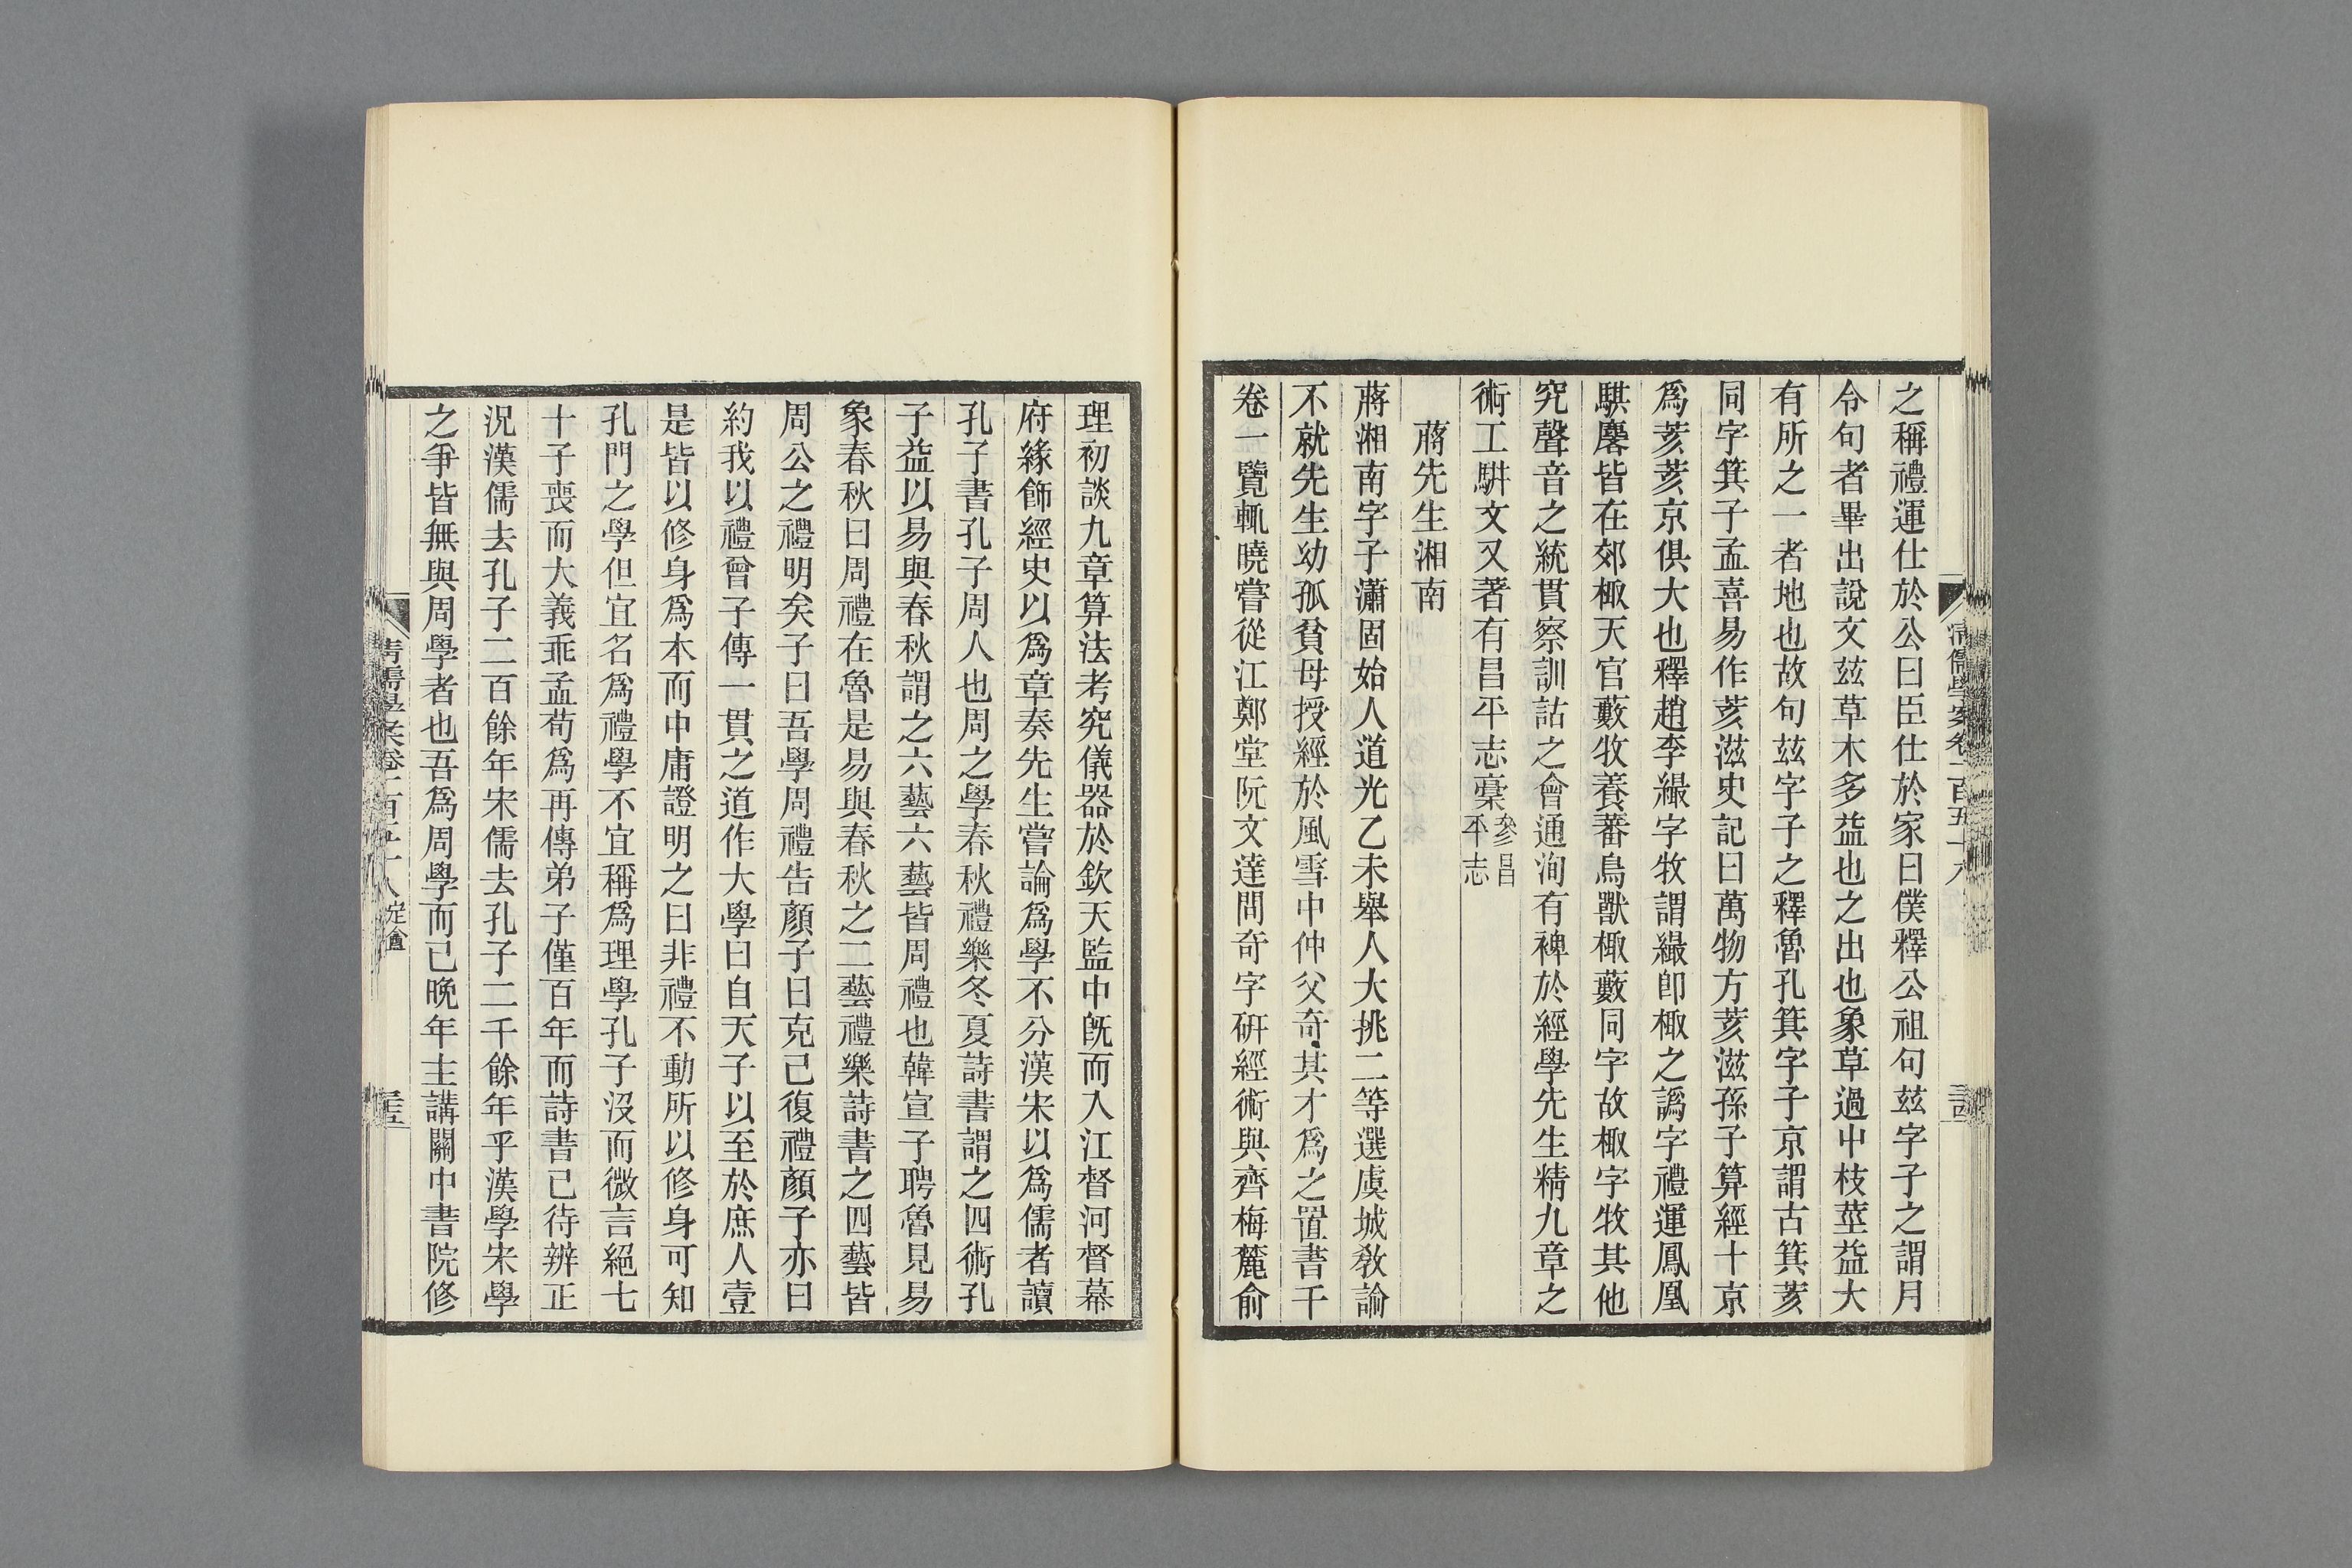 之稱禮運仕於公曰臣仕於家曰僕釋公祖句玆字子之謂月
令句者畢出說文玆草木多益也之出也象草過屮枝莖益大
有所之一者地也故句玆字子之釋魯孔箕字子京謂古箕荄
同字箕子孟喜易作荄滋史記曰萬物方荄滋孫子算經十京
爲荄荄京俱大也釋趙李繓字牧謂繓卽棷之譌字禮運鳳凰
騏麐皆在郊棷天官藪牧養蕃鳥獸棷藪同字故棷字牧其他
究聲音之統貫察訓詁之會通洵有裨於經學先生精九章之
術工駢文又著有昌平志稾參昌平志
蔣先生湘南
蔣湘南字子瀟固始人道光乙未舉人大挑二等選虞城敎諭
不就先生幼孤貧母授經於風雪中仲父奇其才爲之置書千
卷一覽輒曉嘗從江鄭堂阮文達問奇字硏經術與齊梅麓俞
理初談九章算法考究儀器於欽天監中旣而入江督河督幕
府緣飾經史以爲章奏先生嘗論爲學不分漢宋以爲儒者讀
孔子書孔子周人也周之學春秋禮樂冬夏詩書謂之四術孔
子益以易與春秋謂之六藝六藝皆周禮也韓宣子聘魯見易
象春秋曰周禮在魯是易與春秋之二藝禮樂詩書之四藝皆
周公之禮明矣子曰吾學周禮告顏子曰克己復禮顏子亦曰
約我以禮曾子傳一貫之道作大學曰自天子以至於庶人壹
是皆以修身爲本而中庸證明之曰非禮不動所以修身可知
孔門之學但宜名爲禮學不宜稱爲理學孔子沒而微言絕七
十子喪而大義乖孟荀爲再傳弟子僅百年而詩書已待辨正
況漢儒去孔子二百餘年宋儒去孔子二千餘年乎漢學宋學
之爭皆無與周學者也吾爲周學而已晚年主講關中書院修